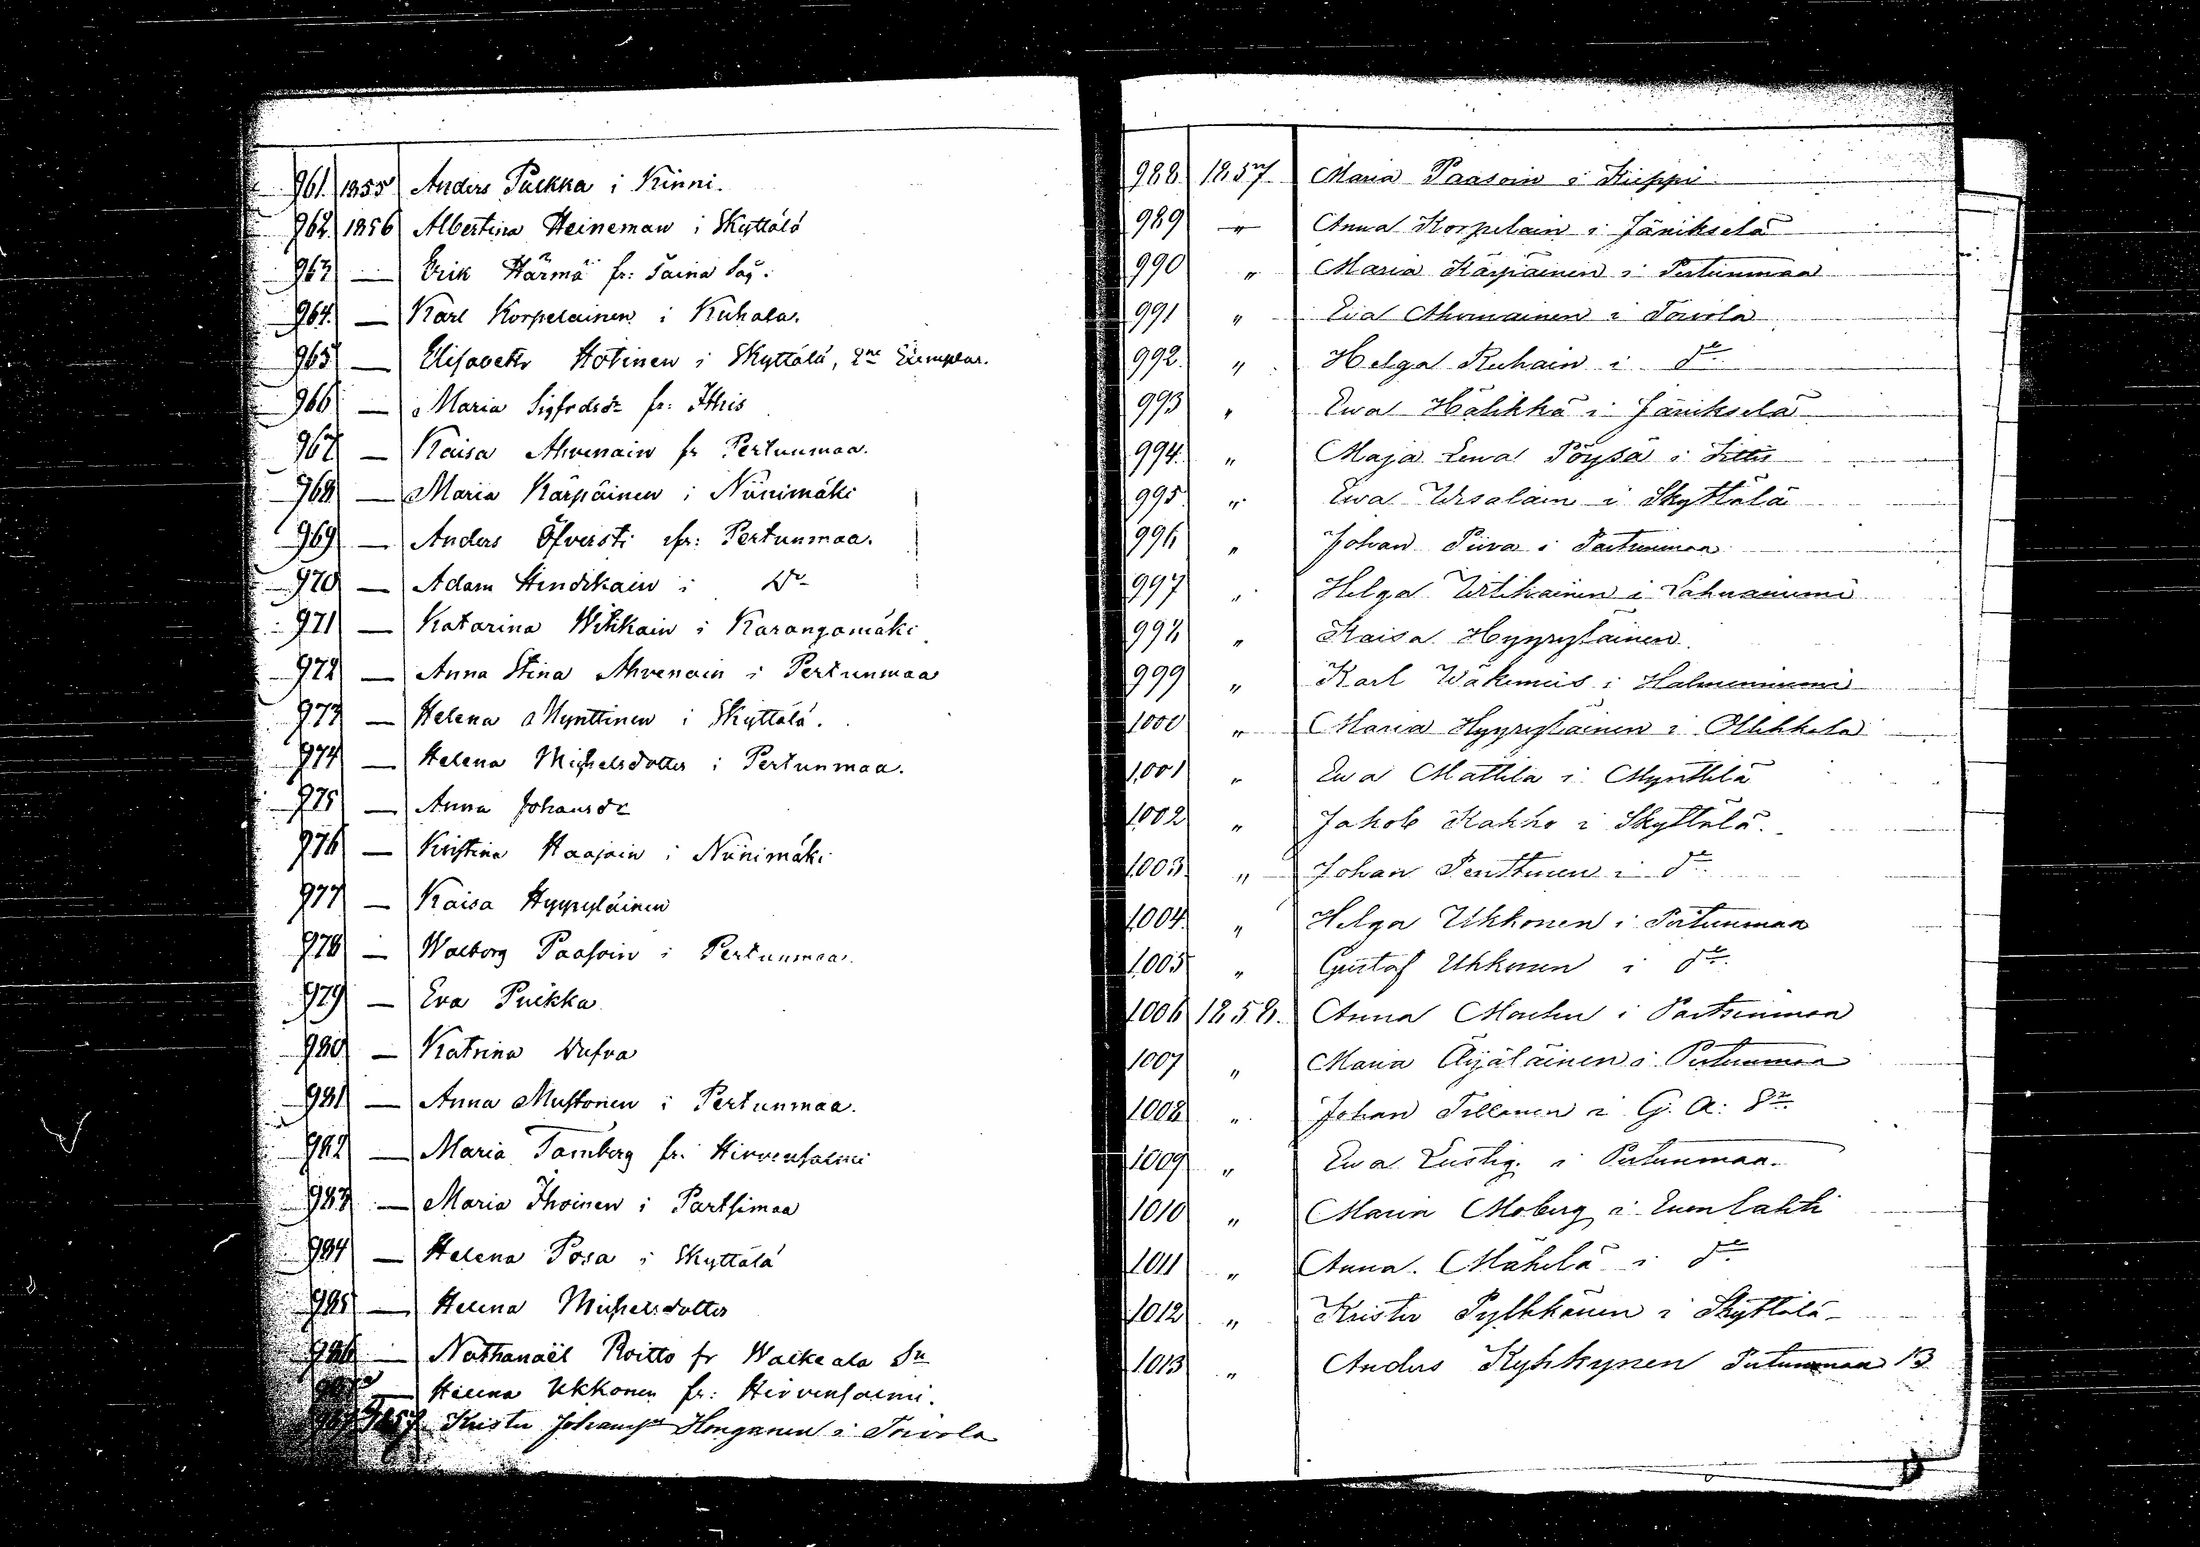 961. 1855 Anders Puikka i Kinni.
962. 1856 Albertina Heineman i Skyttälä
963 — Erik Härmä fr: Taina
964. — Karl Korpelainen i Kuhala.
965 — Elisabeth Hotinen i Skyttälä, 2ne Exemplar.
966 — Maria Sigfrdsdr fr: Ithis
967 — Kaisa Ahvenain fr Pertunmaa.
968 — Maria Kärpäinen i Niinimäki
969 — Anders Öfversti fr: Pertunmaa.
970 — Adam Hendikain i Do
971 — Katarina Witikkain i Karangamäki
972 — Anna Stina Ahvenain i Pertunmaa
973 — Helena Mynttinen i Skyttälä.
974 — Helena Michelsdotter i Pertunmaa.
975 — Anna Johansdr
976 — Kristina Haajain i Niinimäki
977 — Kaisa Hyyryläinen
978 — Walborg Paasoin i Pertunmaa.
979 — Eva Puikka
980 — Katrina Dufva
981 — Anna Mustonen i Pertunmaa.
982 — Maria Tamberg fr: Hirvensalmi
983 — Maria Ihoinen i Partsimaa
984 — Helena Posa i Skyttälä
985 — Helena Michelsdotter
986 — Nathanaël Roitto fr Walkeala Sn
— Helena Ukkonen fr: Hirvensalmi.
1857 Krister Johansson Honganen i Toivola
988 1857. Maria Paasoin i Kieppi
989 " Anna Korpelain i Jänikselä
990 " Maria Kärpäinen i Pertunmaa
991 " Eva Ahvenainen i Toivola
992. " Helga Ruhain i do
993 " Ewa Hälikkä i Jänikselä
994. " Maja Lena Pöysä i Jittis
995 " Ewa Ursalain i Skyttälä
996 " Johan Piiva i Partsimaa
997 " Helga Urtikainen i Vahvaniemi
998 " Kaisa Hyyryläinen.
999 " Karl Wäkeneis i Halmeniemi
1000 " Maria Hyyryläinen i Ollikkala
1001 " Ewa Mattila i Mynttilä
1002 " Jakob Kakko i Skyttälä.
1003. " Johan Penttinen i do
1004. " Helga Ukkonen i Pertunmaa
1005 " Gustaf Ukkonen i do
1006 1858. Anna Mouhu i Partsimaa
1007 " Maria Äijäläinen i Pertunmaa
1008 " Johan Tillanen i G. A: Sn.
1009 " Ewa Lustig i Pertunmaa.
1010 " Maria Moberg i Enonlahti
1011 " Anna Mähelä i do
1012 " Krister Pylkkänen i Skyttälä
1013 " Anders Kyhkynen Pertunmaa 13